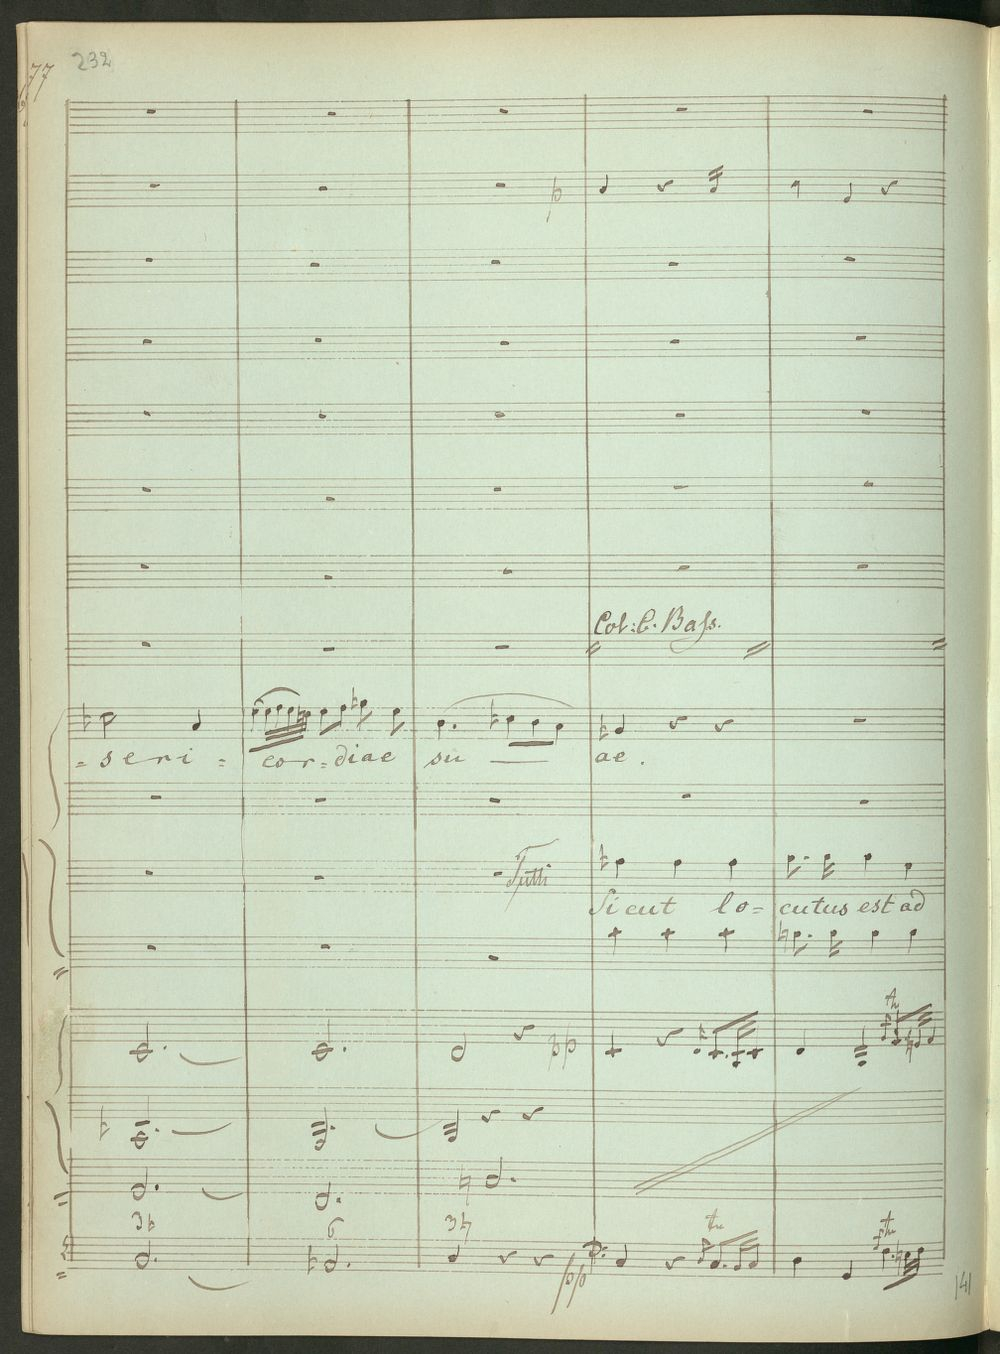 77
232
p
Col: C. Bass.
= seri = cor = diae su — ae.
Tutti
Sicut lo = cutus est ad
tr
pp
3♭ 6 3♮
tr tr
pp
141